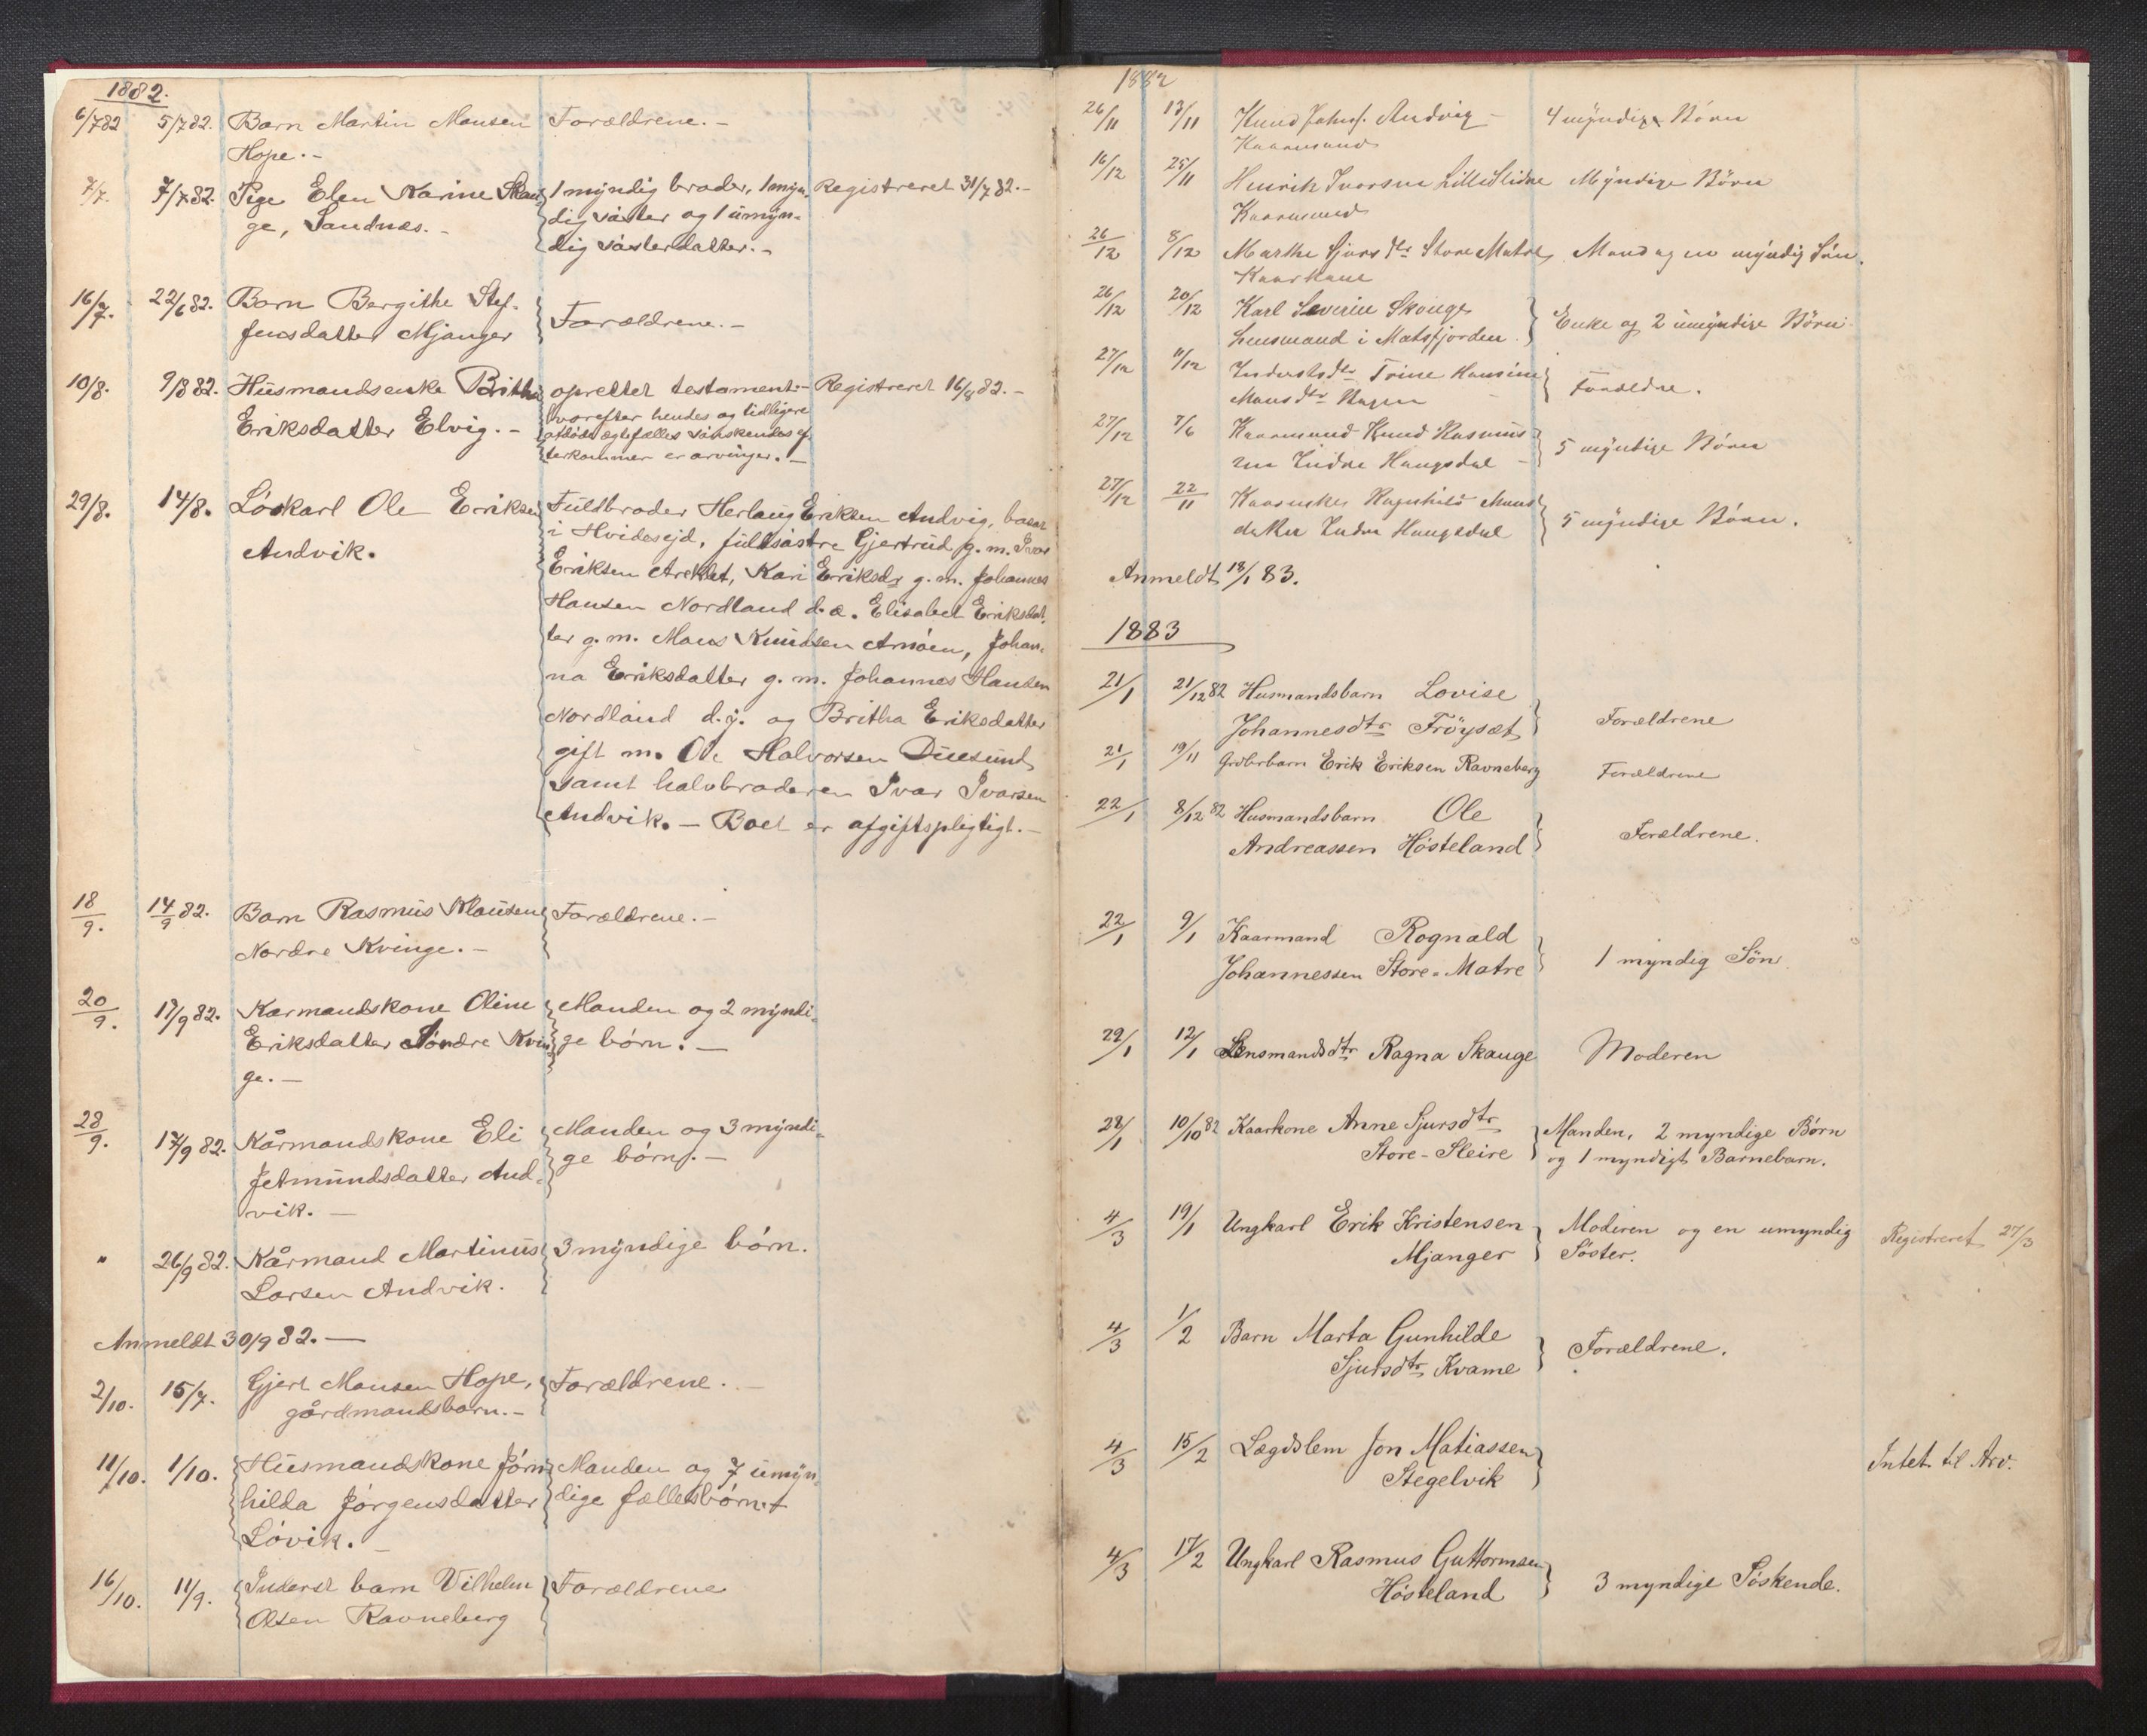 1882.
6/7 82 5/7 82. Barn Martin Monsen Forældrene. -
Hope. -
7/7. 7/7 82. Pige Elen Karine Skau- 1 myndig broder, 1 myn- Registreret 31/7 82. -
ge, Sandnæs. - dig søster og 1 umyn-
dig søsterdatter. -
16/7. 22/6 82. Barn Bergithe Stef-
fensdatter Mjanger Forældrene. -
10/8. 9/8 82. Husmandsenke Britha oprettet testament - Registreret 16/8 82. -
hvorefter hendes og tidligere
Eriksdatter Elvig. - afdøde ægtefælles søskendes ef-
terkommer er arvinger. -
29/8. 14/8. Løskarl Ole Eriksen Fuldbroder Herlaug Eriksen Andvig, bosat
Andvik. i Hvidesejd, fuldsøstre Gjertrud g. m. Ivar
Eriksen , Kari Eriksdr g. m. Johannes
Hansen Nordland d. æ. Elisabet Eriksdat-
ter g. m. Mons Knudsen , Johan-
na Eriksdatter g. m. Johannes Hansen
Nordland d. y. og Britha Eriksdatter
gift m. Ole Halvorsen Duesund
samt halvbroderen Ivar Ivarsen
Andvik. - Boet er afgiftspligtigt. -
18/9. 14/9 82. Barn Rasmus Monsen Forældrene. -
Nordre Kvinge. -
20/9. 17/9 82. Karmandskone Oline Manden og 2 myndi-
Eriksdatter Søndre Kvin- ge børn. -
ge. -
28/9. 17/9 82. Kårmandskone Eli Manden og 3 myndi-
Jetmundsdatter And- ge børn. -
vik. -
" 26/9 82. Kårmand Martinus 3 myndige børn.
Larsen Andvik.
Anmeldt 30/9 82. -
2/10. 15/7. Gjert Monsen Hope, Forældrene. -
gårdmandsbarn. -
11/10. 1/10. Husmandskone Jørn- Manden og 7 umyn-
hilda Jørgensdatter dige fællesbørn. +
Løvik. -
16/10. 11/9. Inderst barn Vilhelm Forældrene
Olsen Ravneberg
1882
26/11 13/11 Knud Johns. Andvig - 4 myndige Börn
Kaarmand
16/12 25/11 Henrik Ivarsen Lille Slidre Myndige Börn
Kaarmand
26/12 8/12 Marthe Sjursdtr Store Matre, Mand og en myndig Sön.
Kaarkone
26/12 20/12 Karl Severin Skauge
Lensmand i Matsfjorden Enke og 2 umyndige Börn
27/12 11/12 Inderstsdtr Trine Hansine
Monsdtr Forældre.
27/12 7/6 Kaarmand Knud Rasmus-
sen Indre Haugsdal - 5 myndige Börn
27/12 22/11 Kaarenke Ragnhild Mons-
datter Indre Haugsdal 5 myndige Börn.
Anmeldt 18/1 83.
1883
21/1 21/12 82 Husmandsbarn Lovise
Johannesdtr Fröysæt Forældrene
21/1 19/11 Grdbrbarn Erik Eriksen Ravneberg Forældrene
22/1 8/12 82 Husmandsbarn Ole
Andreassen Høsteland Forældrene.
22/1 9/1 Kaarmand Rognald
Johannessen Store-Matre 1 myndig Sön
22/1 12/1 Lensmandsdtr Ragna Skauge Moderen
28/1 10/10 82 Kaarkone Anne Sjursdtr Manden, 2 myndige Børn
Store-Sleire og 1 myndigt Barnebarn.
4/3 19/1 Ungkarl Erik Kristensen Moderen og en umyndig Registreret 27/3
Mjanger Söster.
4/3 1/2 Barn Marta Gunhilde
Sjursdtr Kvame Forældrene.
4/3 15/2 Lægdslem Jon Matiassen
Stegelvik Intet til Arv.
4/3 17/2 Ungkarl Rasmus Guttormsen
Høsteland 3 myndige Søskende.